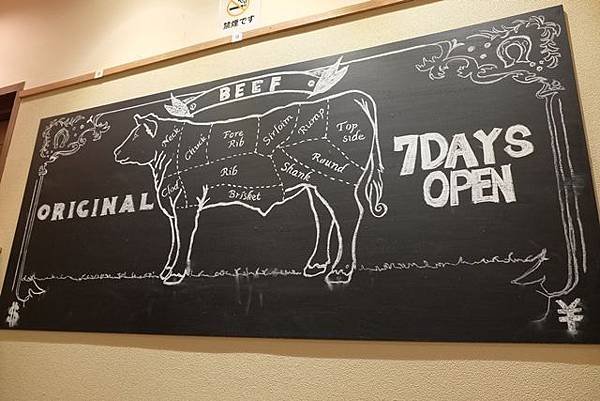 禁煙です
BEEF
Neck
Chuck
Fore
Rib
Sirloin
Rump
Top
side
Round
Rib
Shank
Clod
Brisket
ORIGINAL
7DAYS
OPEN
$
¥